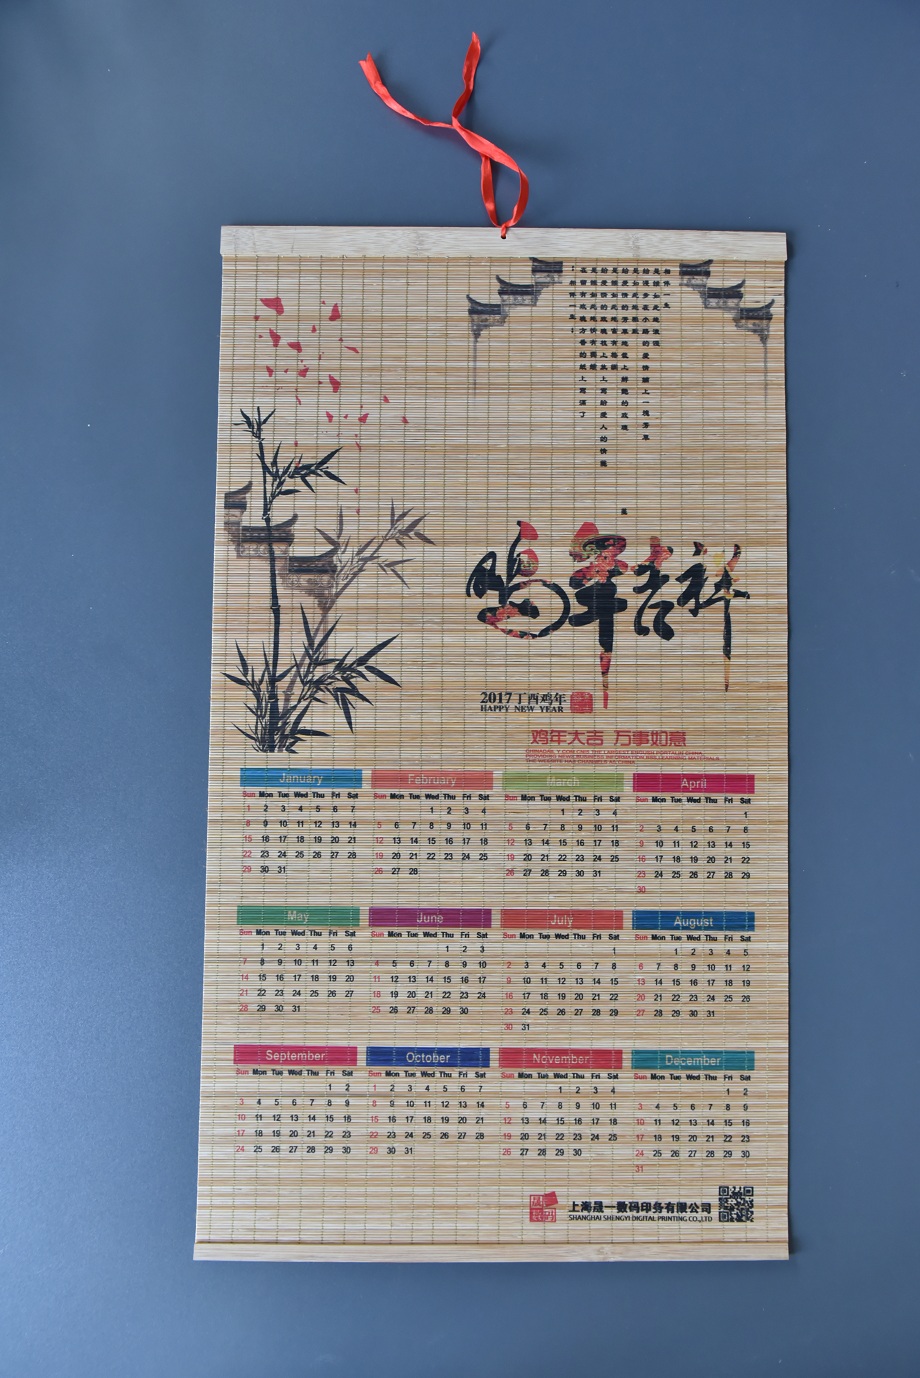 鸡年吉祥
2017丁酉鸡年
HAPPY NEW YEAR
鸡年大吉 万事如意
January
Sun Mon Tue Wed Thu Fri Sat
1 2 3 4 5 6 7
8 9 10 11 12 13 14
15 16 17 18 19 20 21
22 23 24 25 26 27 28
29 30 31
February
Sun Mon Tue Wed Thu Fri Sat
1 2 3 4
5 6 7 8 9 10 11
12 13 14 15 16 17 18
19 20 21 22 23 24 25
26 27 28
March
Sun Mon Tue Wed Thu Fri Sat
1 2 3 4
5 6 7 8 9 10 11
12 13 14 15 16 17 18
19 20 21 22 23 24 25
26 27 28 29 30 31
April
Sun Mon Tue Wed Thu Fri Sat
1
2 3 4 5 6 7 8
9 10 11 12 13 14 15
16 17 18 19 20 21 22
23 24 25 26 27 28 29
30
May
Sun Mon Tue Wed Thu Fri Sat
1 2 3 4 5 6
7 8 9 10 11 12 13
14 15 16 17 18 19 20
21 22 23 24 25 26 27
28 29 30 31
June
Sun Mon Tue Wed Thu Fri Sat
1 2 3
4 5 6 7 8 9 10
11 12 13 14 15 16 17
18 19 20 21 22 23 24
25 26 27 28 29 30
July
Sun Mon Tue Wed Thu Fri Sat
1
2 3 4 5 6 7 8
9 10 11 12 13 14 15
16 17 18 19 20 21 22
23 24 25 26 27 28 29
30 31
August
Sun Mon Tue Wed Thu Fri Sat
1 2 3 4 5
6 7 8 9 10 11 12
13 14 15 16 17 18 19
20 21 22 23 24 25 26
27 28 29 30 31
September
Sun Mon Tue Wed Thu Fri Sat
1 2
3 4 5 6 7 8 9
10 11 12 13 14 15 16
17 18 19 20 21 22 23
24 25 26 27 28 29 30
October
Sun Mon Tue Wed Thu Fri Sat
1 2 3 4 5 6 7
8 9 10 11 12 13 14
15 16 17 18 19 20 21
22 23 24 25 26 27 28
29 30 31
November
Sun Mon Tue Wed Thu Fri Sat
1 2 3 4
5 6 7 8 9 10 11
12 13 14 15 16 17 18
19 20 21 22 23 24 25
26 27 28 29 30
December
Sun Mon Tue Wed Thu Fri Sat
1 2
3 4 5 6 7 8 9
10 11 12 13 14 15 16
17 18 19 20 21 22 23
24 25 26 27 28 29 30
31
上海晟一数码印务有限公司
SHANGHAI SHENGYI DIGITAL PRINTING CO.,LTD